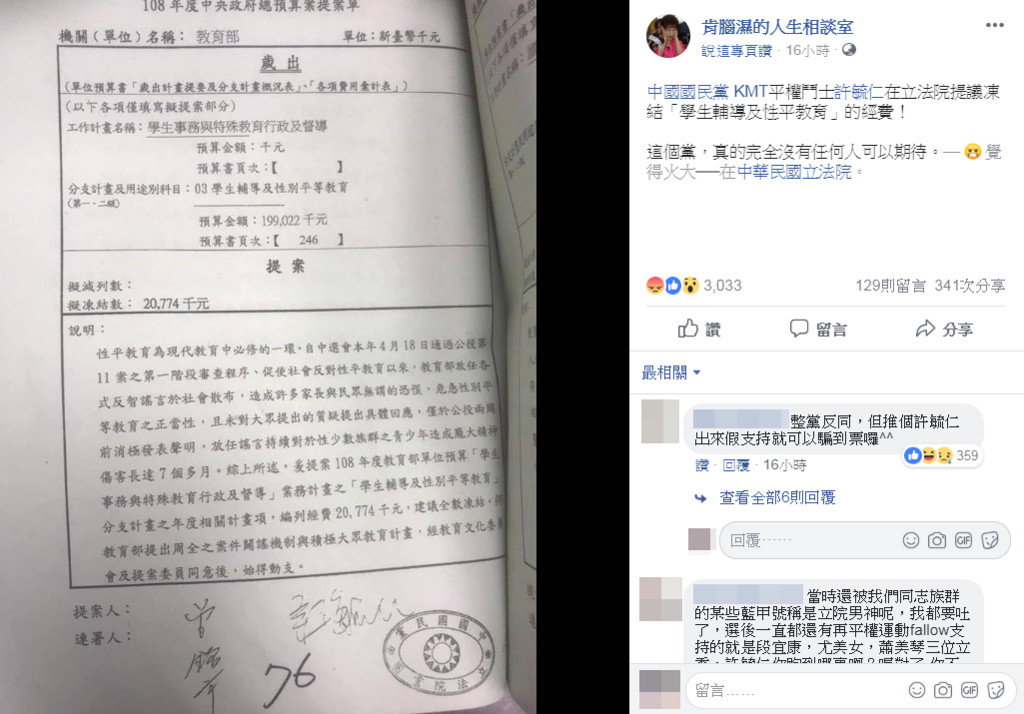 108 年度中央政府總預算案提案單
機關（單位）名稱： 教育部
單位：新臺幣千元
歲出
（單位預算書「歲出計畫提要及分支計畫概況表」、「各項費用彙計表」）
（以下各項僅填寫擬提案部分）
工作計畫名稱：學生事務與特殊教育行政及督導
預算金額：千元
預算書頁次：【 】
分支計畫及用途別科目：03 學生輔導及性別平等教育
（第一、二級）
預算金額：199,022 千元
預算書頁次：【 246 】
提案
擬減列數：
擬凍結數： 20,774 千元
說明：
性平教育為現代教育中必修的一環、自中選會本年 4 月 18 日通過公投第
11 案之第一階段審查程序、促使社會反對性平教育以來，教育部放任各
式反智謠言於社會散布，造成許多家長與民眾無謂的恐慌，危急性別平
等教育之正當性，且未對大眾提出的質疑提出具體回應，僅於公投兩周
前消極發表聲明，放任謠言持續對於性少數族群之青少年造成龐大精神
傷害長達 7 個多月。綜上所述，爰提案 108 年度教育部單位預算「學生
事務與特殊教育行政及督導」業務計畫之「學生輔導及性別平等教育」
分支計畫之年度相關計畫項，編列經費 20,774 千元，建議全數凍結，待
教育部提出周全之案件闢謠機制與積極大眾教育計畫，經教育文化委員
會及提案委員同意後，始得動支。
提案人：
連署人：
許毓仁
76
中國國民黨
立法院黨
肯腦濕的人生相談室
說這專頁讚 · 16小時 ·
中國國民黨 KMT平權鬥士許毓仁在立法院提議凍
結「學生輔導及性平教育」的經費！
這個黨，真的完全沒有任何人可以期待。— 覺
得火大——在中華民國立法院。
3,033
129則留言 341次分享
讚
留言
分享
最相關
整黨反同，但推個許毓仁
出來假支持就可以騙到票囉^^
359
讚 · 回覆 · 16小時
查看全部6則回覆
回覆……
GIF
當時還被我們同志族群
的某些藍甲號稱是立院男神呢，我都要吐
了，選後一直都還有再平權運動fallow支
持的就是段宜康，尤美女，蕭美琴三位立
留言……
GIF